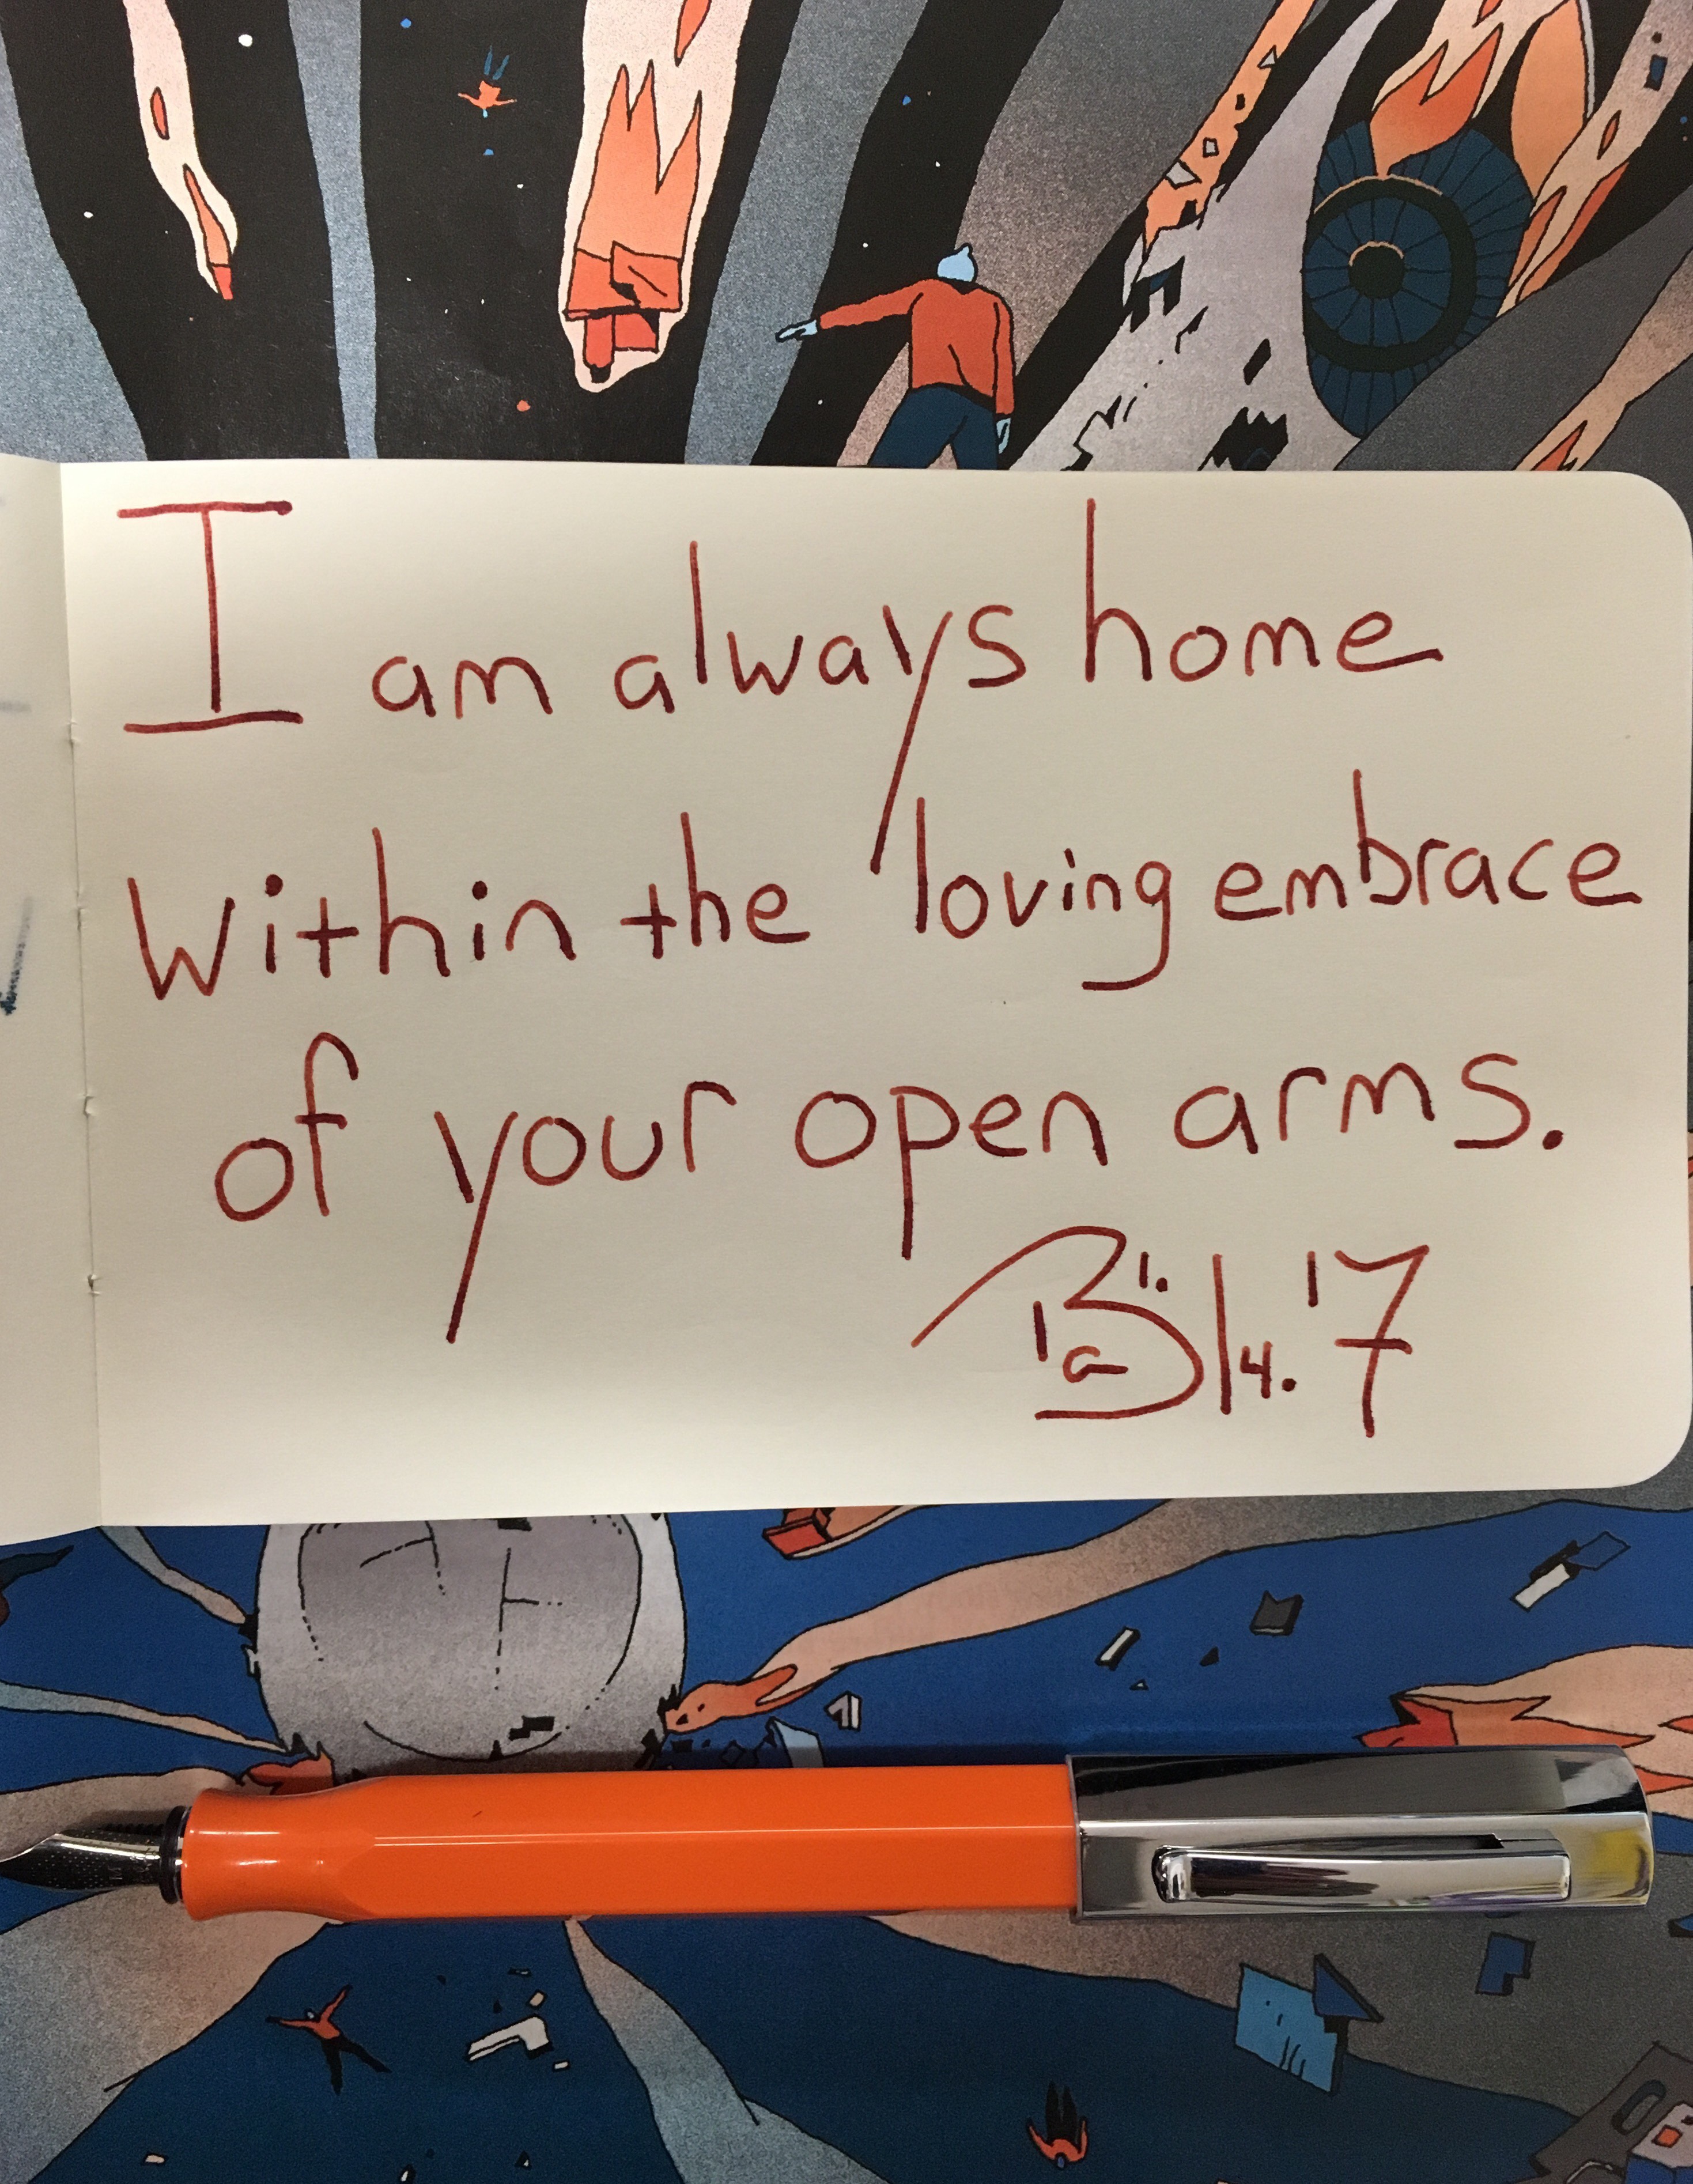 I am always home
within the loving embrace
of your open arms.
14.'17